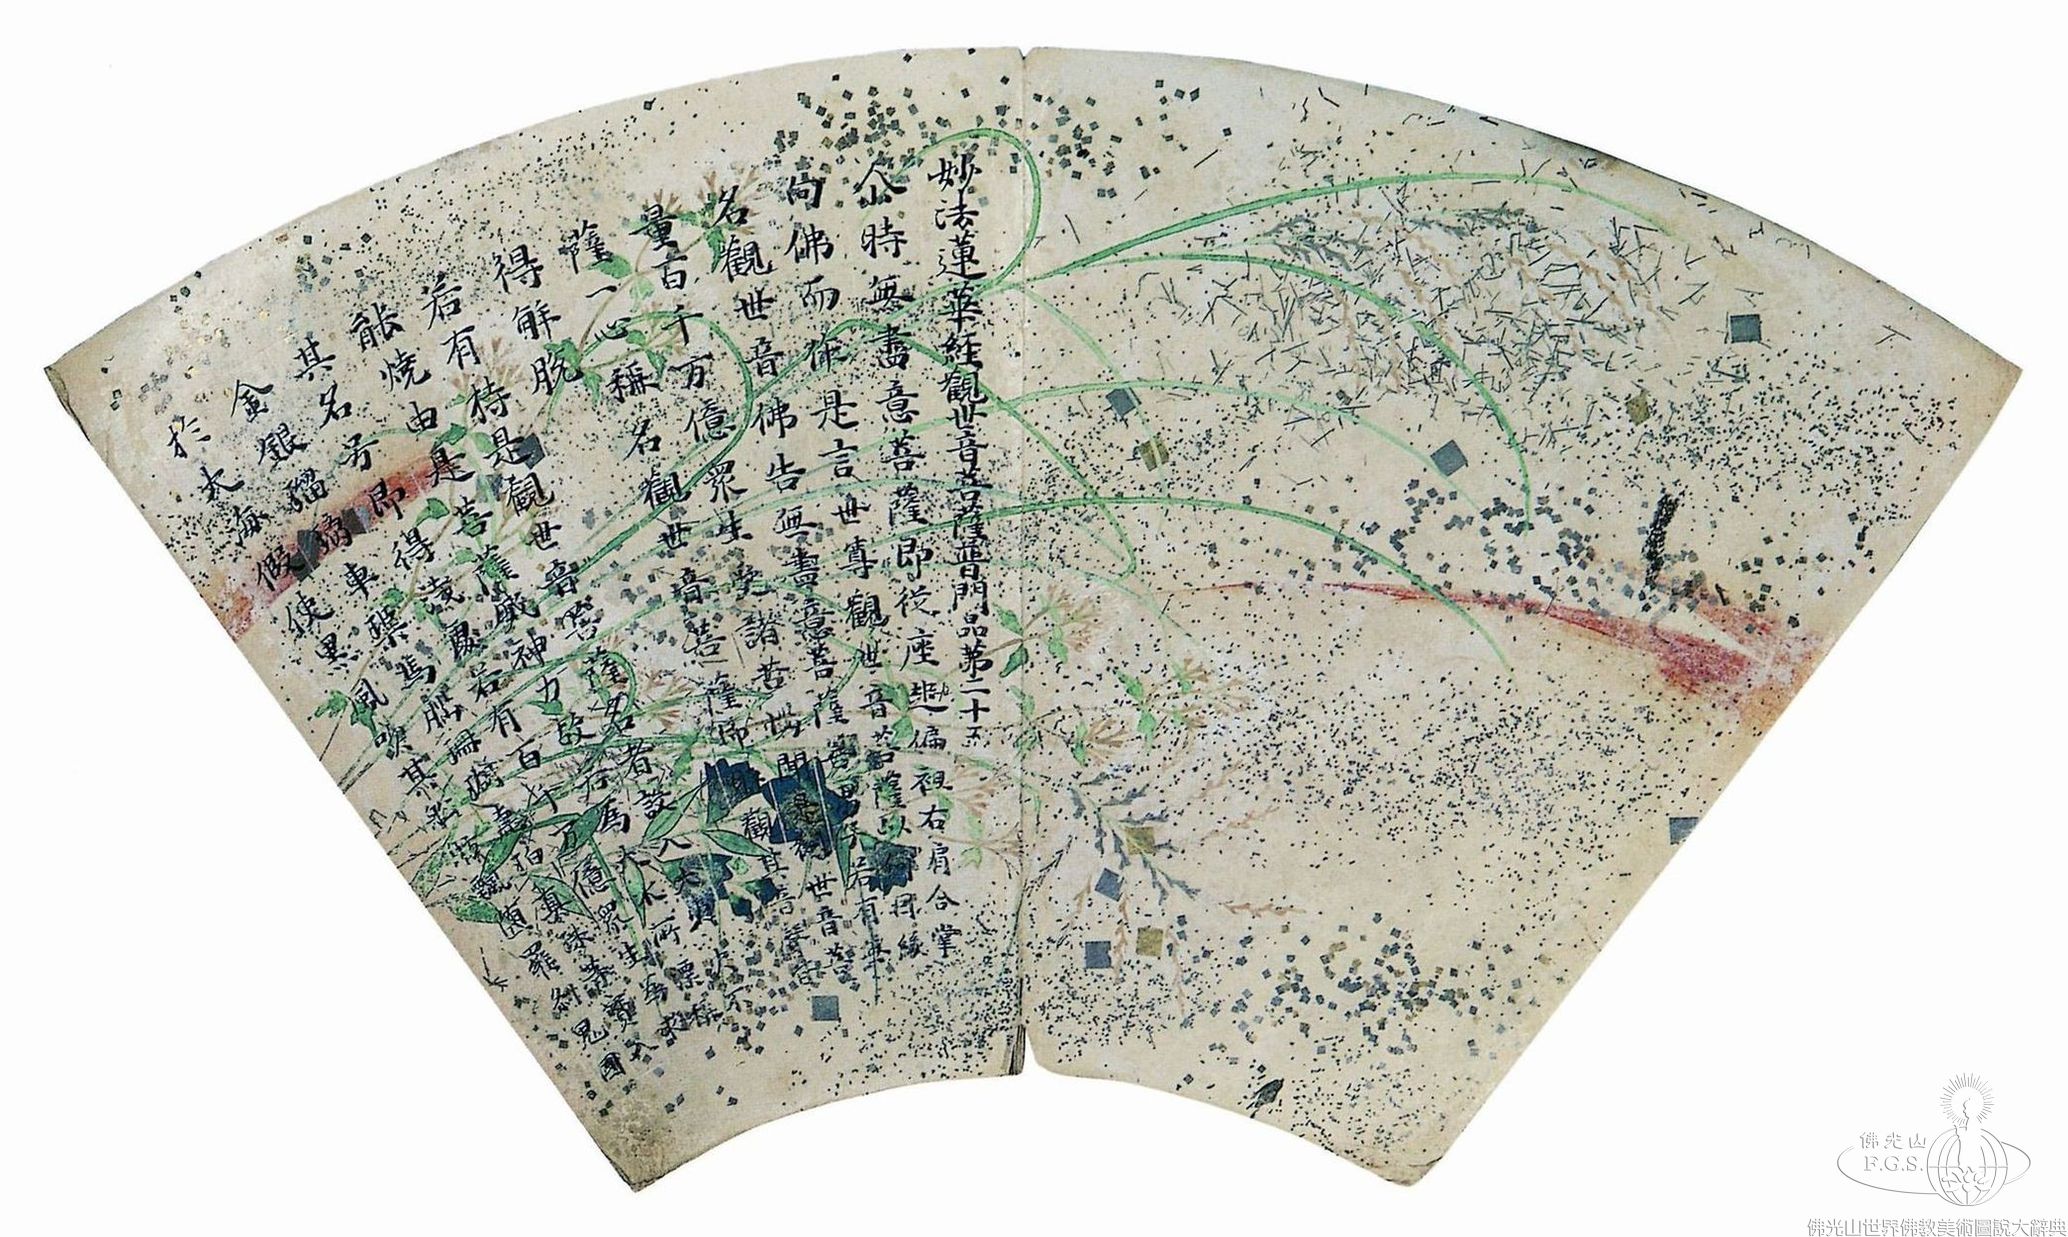 妙法蓮華經觀世音菩薩普門品第二十五
尒時無盡意菩薩即從座起偏袒右肩合掌
向佛而作是言世尊觀世音菩薩以何因緣
名觀世音佛告無盡意菩薩善男子若有無
量百千万億眾生受諸苦惱聞是觀世音菩
薩一心稱名觀世音菩薩即時觀其音聲皆
得解脫
若有持是觀世音菩薩名者設入大火火不
能燒由是菩薩威神力故若為大水所漂稱
其名号即得淺處若有百千万億眾生為求
金銀瑠璃車璖馬瑙珊瑚虎珀真珠等寶入
於大海假使黑風吹其船舫漂墮羅剎鬼國
佛光山
F.G.S.
佛光山世界佛教美術圖說大辭典